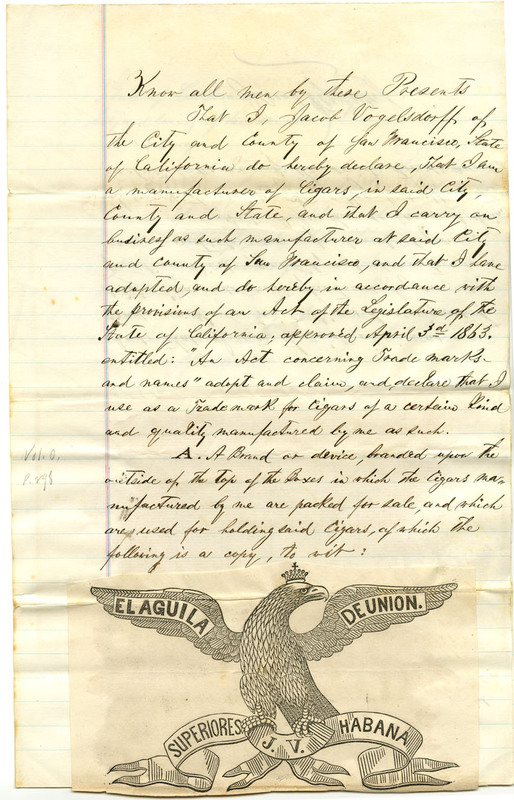 Know all men by these Presents
That I, Jacob Vogelsdorff of
the City and County of San Francisco, State
of California do hereby declare, That I am
a manufacturer of Cigars, in said City,
County and State, and that I carry on
business as such manufacturer at said City
and County of San Francisco, and that I have
adopted, and do hereby in accordance with
the provisions of an Act of the Legislature of the
State of California, approved April 3d 1863.
entitled: "An Act concerning Trade marks
and names" adopt and claim, and declare that I
use as a Trade mark for Cigars of a certain kind
and quality manufactured by me as such.
A. A Brand or device, boarded upon the
outside of the top of the Boxes in which the Cigars ma-
nufactured by me are packed for sale, and which
are used for holding said Cigars, of which the
following is a copy, to wit:
Vol. O.
P. 298
EL AGUILA DE UNION.
SUPERIORES J. V. HABANA